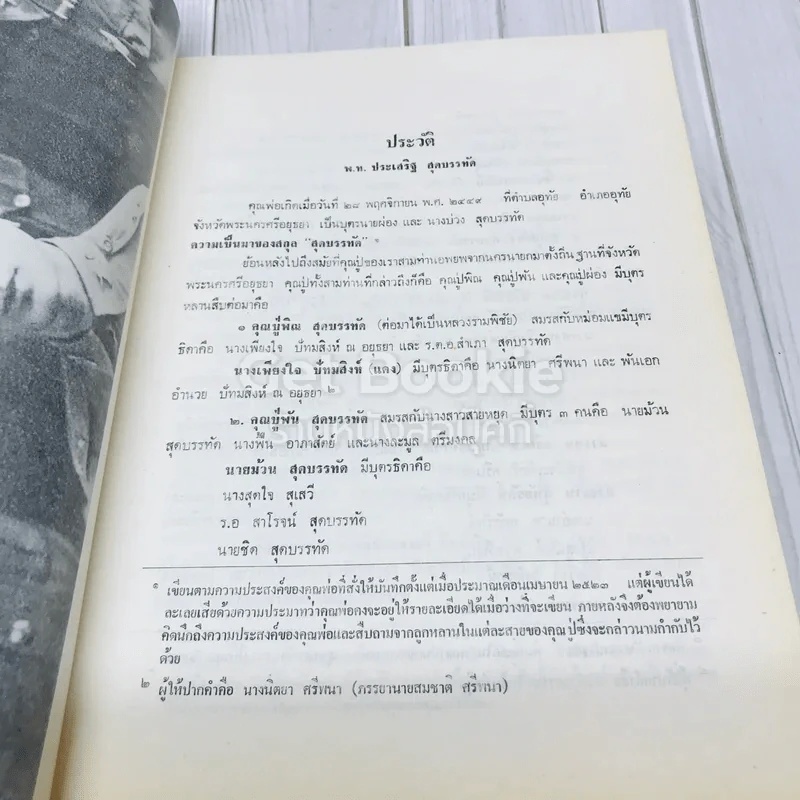 ประวัติ
พ.ท. ประเสริฐ สุดบรรทัด
คุณพ่อเกิดเมื่อวันที่ ๒๘ พฤศจิกายน พ.ศ. ๒๔๔๙ ที่ตำบลอุทัย อำเภออุทัย
จังหวัดพระนครศรีอยุธยา เป็นบุตรนายผ่อง และ นางบ่วง สุดบรรทัด
ความเป็นมาของสกุล "สุดบรรทัด" ๑
ย้อนหลังไปถึงสมัยที่คุณปู่ของเราสามท่านอพยพจากนครนายกมาตั้งถิ่นฐานที่จังหวัด
พระนครศรีอยุธยา คุณปู่ทั้งสามท่านที่กล่าวถึงก็คือ คุณปู่พิณ คุณปู่พัน และคุณปู่ผ่อง มีบุตร
หลานสืบต่อมาคือ
๑ คุณปู่พิณ สุดบรรทัด (ต่อมาได้เป็นหลวงรามพิชัย) สมรสกับหม่อมแขมีบุตร
ธิดาคือ นางเพียงใจ ปัทมสิงห์ ณ อยุธยา และ ร.ต.อ.สำเภา สุดบรรทัด
นางเพียงใจ ปัทมสิงห์ (แดง) มีบุตรธิดาคือ นางนิตยา ศรีพนา และ พันเอก
อำนวย ปัทมสิงห์ ณ อยุธยา ๒
Get Bookie
ร้านหนังสือบุ๊คกี้
๒. คุณปู่พัน สุดบรรทัด สมรสกับนางสาวสายหยุด มีบุตร ๓ คนคือ นายม้วน
สุดบรรทัด นางพื้น อาภาสัตย์ และนางละมูล ตรีมงคล
นายม้วน สุดบรรทัด มีบุตรธิดาคือ
นางสุดใจ สุเสวี
ร.อ สาโรจน์ สุดบรรทัด
นายชิต สุดบรรทัด
๑ เขียนตามความประสงค์ของคุณพ่อที่สั่งให้บันทึกตั้งแต่เมื่อประมาณเดือนเมษายน ๒๕๒๓ แต่ผู้เขียนได้
ละเลยเสียด้วยความประมาทว่าคุณพ่อคงจะอยู่ให้รายละเอียดได้เมื่อว่างที่จะเขียน ภายหลังจึงต้องพยายาม
คิดนึกถึงความประสงค์ของคุณพ่อและสืบถามจากลูกหลานในแต่ละสายของคุณปู่ซึ่งจะกล่าวนามกำกับไว้
ด้วย
๒ ผู้ให้ปากคำคือ นางนิตยา ศรีพนา (ภรรยานายสมชาติ ศรีพนา)